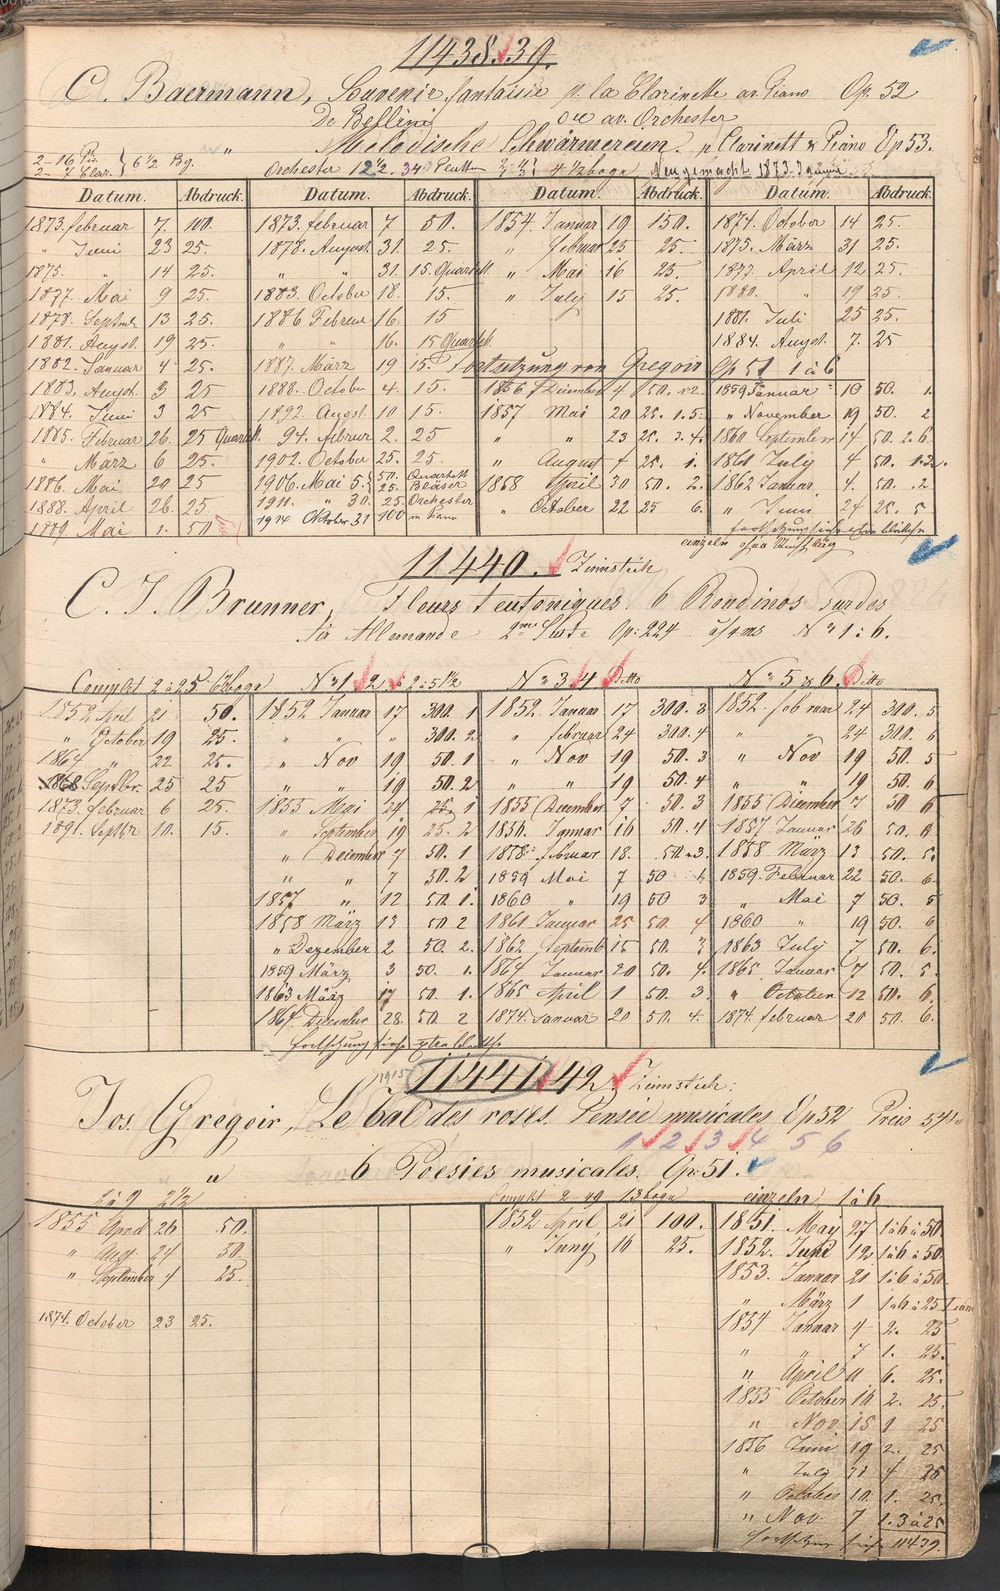 11438.39.
C. Baermann, Souvenir fantaisie p. la Clarinette av. Piano Op. 52
De Bellini ou av. Orchester
" Melodische Schwärmereien. p Clarinett & Piano Op 53.
2-16 Pi. 2-7 Clar. } 6 1/2 Bg. Orchester 12 1/2. 34 4 1/2 bogn Neu gemacht 1873. Januar
Datum. Abdruck. Datum. Abdruck. Datum. Abdruck. Datum. Abdruck.
1873. februar 7. 100. 1873. februar 7 50. 1854 Januar 19 150. 1874. October 14 25.
" Juni 23 25. 1878. August 31. 25. " februar 25 25. 1875. März 31 25.
1875. " 14 25. " " 31. 15. Quartett. " Mai 16 25. 1877. April 12 25.
1877. Mai 9 25. 1883. October 18. 15. " July 15 25. 1880. " 19 25.
1878. Septmb 13 25. 1886 Februar 16. 15 1881. Juli 25 25.
1881. Augst. 19 25. " " 16. 15 Quartett. 1884. Augst. 7. 25
1882. Januar 4 25. 1887. März 19 15. Fortsetzung von Gregoir Op 51 1 à 6
1883. August 3 25 1888. Octobe 4. 15. 1856 December 4 50. 1859 Januar 10 50. 1.
1884. Juni 3 25 1892. Augst 10 15. 1857 Mai 20 25. 1.5. " November 19 50. 2
1885. Februar 26. 25 Quartett. 94. februar 2. 25 " " 23 25. 3.4. 1860 September 14 50. 2.6.
" März 6 25. 1902. October 25. 25. " August 4 25. 1. 1861 July 4 50. 1.2.
1886. Mai 20 25 1906. Mai 5. 50. Quartett 25. Bläser 1858 April 30 50. 2. 1862 Januar 4. 50. 2
1888. April 26. 25 1911. " 30. 25. Orchester " October 22 25 6. " Juni 24 25. 5
1889. Mai 1. 50 1914 Oktober 31 100 m Piano
einzeln ohne Umschlag
11440. Zinnstich
C. T. Brunner, Fleurs teutoniques. 6 Rondinos sur des
Air Allemande 2me Suite Op: 224 à/4ms No 1 : 6.
Complet 2 à 25 6 1/2 bogn No 1 2 à 2:5 1/2 No 3 4 Ditto No 5 & 6. Ditto
1852 April 21 50. 1852 Januar 17 300. 1 1852. Januar 17 300. 3 1852. februar 24 300. 5
" October 19 25. " " " 300. 2. " februar 24 300. 4 " " 24 300. 6
1864 " 22 25. " Nov 19 50. 1 " Nov 19 50. 3 " Nov 19 50. 5
1868 Septbr. 25 25 " " 19 50. 2 " " 19 50. 4 " " 19 50. 6
1873. februar 6 25. 1855 Mai 24 25. 1 1855 December 7 50. 3 1855 December 7 50 6
1891. Septbr 10. 15. " September 19 25. 2 1856. Januar 16 50. 4 1857 Januar 26 50. 6
" December 7 50. 1 1858. februar 18. 50. 3. 1858 März 13 50. 5.
" " 7 50. 2 1859 Mai 7 50 4. 1859. Februar 22 50. 6.
1857 " 12 50. 1. 1860 " 19 50 3 " Mai 7 50. 5
1858 März 13 50 2 1861 Januar 25 50. 4 1860 " 19 50. 6
" Dezember 2 50. 2. 1862 Septemb 15 50. 3 1863 July 7 50. 6.
1859 März 3 50. 1. 1864 Januar 20 50. 4. 1865 Januar 7 50. 5.
1863 März 17 50. 1. 1865 April 1 50. 3. " October 12 50. 6.
1864 December 28. 50. 2 1874. Januar 20 50. 4. 1874. februar 20 50. 6.
1915 11441.42 Zinnstich:
Jos. Gregoir, Le bal des roses. Pensée musicales Op 52
1 2 3 4 5 6
" 6 Poesies musicales. Op: 51.
Complet 2 19 13 bogn einzeln 1 à 6
1855 April 26 50. 1852 April 21 100. 1851. May 27 1 à 6 à 50
" Aug 24 50. " Juny 16 25. 1852. Juni 12 1 à 6 à 50.
" September 4 25. 1853. Januar 21 1 à 6 à 50
" März 1 1 à 6 à 25
1874. October 23 25. 1854 Januar 4 2. 25
" " 7 1. 25.
" April 11 6. 25.
1855 October 16 2. 25.
" Nov. 15 1 25
1856 Juni 19 2. 25
" July 31 4 25
" October 10 1. 25.
" Nov. 7 1. 3 à 25
Fortsetzung siehe 11439.